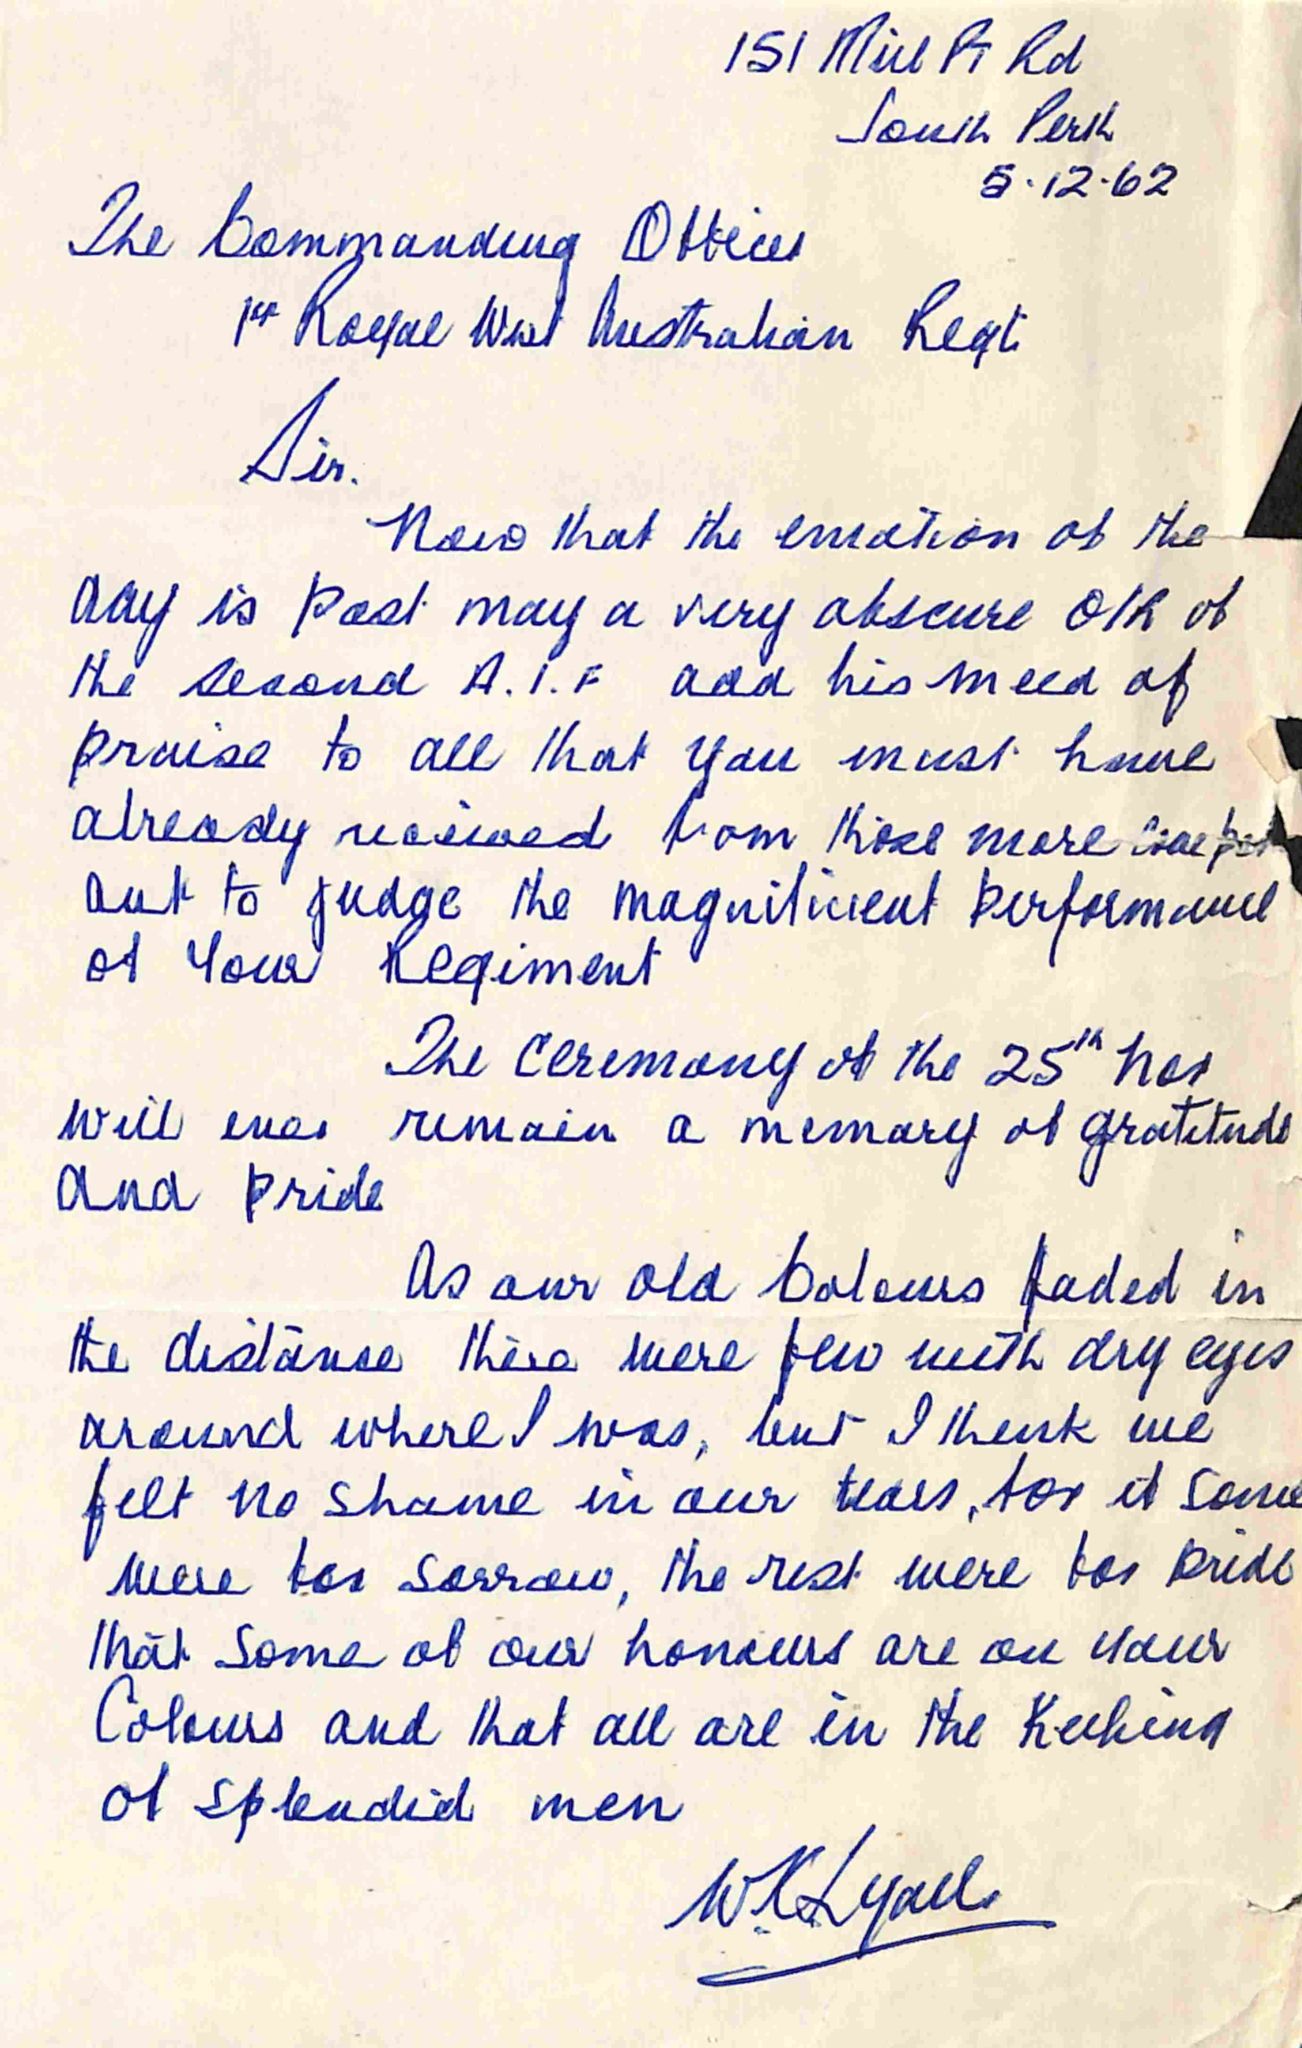 151 Mill Pt Rd
South Perth
5.12.62
The Commanding Officer
1st Royal West Australian Regt.
Sir.
Now that the emotion of the
day is past may a very obscure O/R of
the second A.I.F add his meed of
praise to all that you must have
already received from those more compet
ant to judge the magnificent performance
of your Regiment
The ceremony of the 25th Nov
will ever remain a memory of gratitude
and pride
As our old Colours faded in
the distance there were few with dry eyes
around where I was, but I think we
felt no shame in our tears, for if some
were for sorrow, the rest were for pride
that some of our honours are on your
Colours and that all are in the keeping
of splendid men
W.K. Lyall.